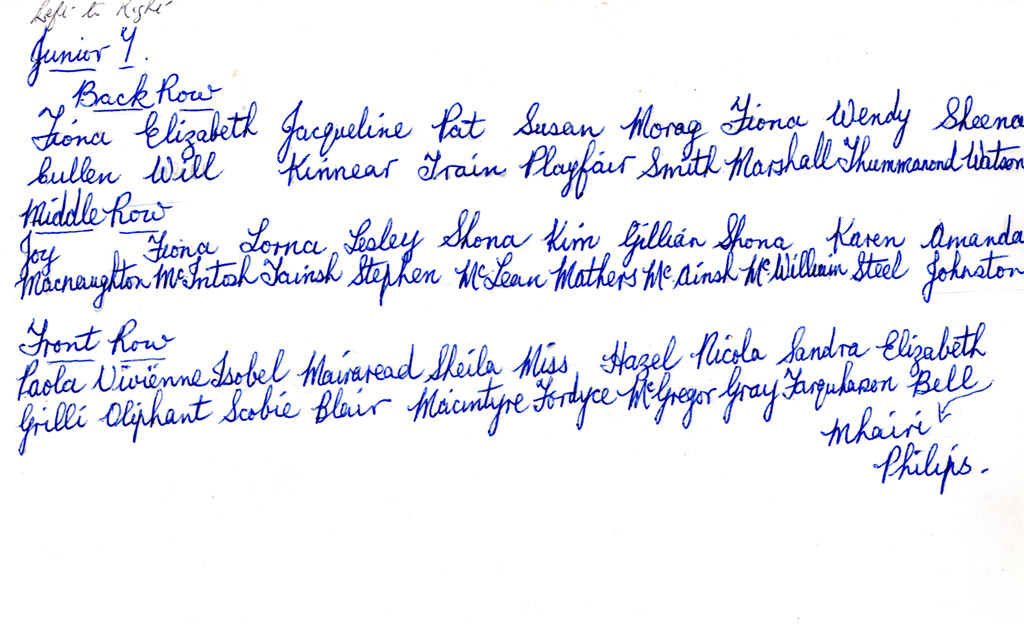 Left to Right
Junior 4.
Back Row
Fiona Elizabeth Jacqueline Pat Susan Morag Fiona Wendy Sheena
Cullen Will Kinnear Train Playfair Smith Marshall Thummanond Watson
Middle Row
Joy Fiona Lorna Lesley Shona Kim Gillian Shona Karen Amanda
Macnaughton McIntosh Tainsh Stephen McLean Mathers McAinsh McWilliam Steel Johnston
Front Row
Paola Vivienne Isobel Mairaread Sheila Miss Hazel Nicola Sandra Elizabeth
Grilli Oliphant Scobie Blair Macintyre Fordyce McGregor Gray Farquharson Bell
Mhairi
Philips.